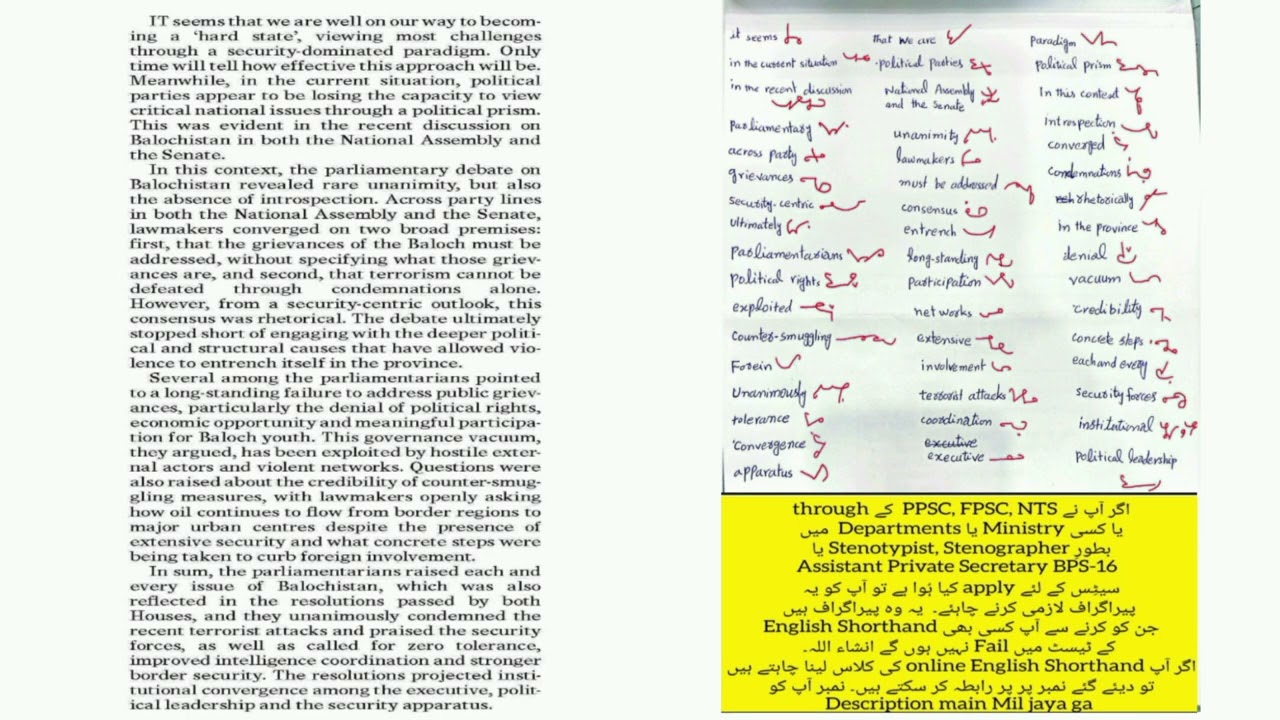 IT seems that we are well on our way to becom-
ing a ‘hard state’, viewing most challenges
through a security-dominated paradigm. Only
time will tell how effective this approach will be.
Meanwhile, in the current situation, political
parties appear to be losing the capacity to view
critical national issues through a political prism.
This was evident in the recent discussion on
Balochistan in both the National Assembly and
the Senate.
In this context, the parliamentary debate on
Balochistan revealed rare unanimity, but also
the absence of introspection. Across party lines
in both the National Assembly and the Senate,
lawmakers converged on two broad premises:
first, that the grievances of the Baloch must be
addressed, without specifying what those griev-
ances are, and second, that terrorism cannot be
defeated through condemnations alone.
However, from a security-centric outlook, this
consensus was rhetorical. The debate ultimately
stopped short of engaging with the deeper politi-
cal and structural causes that have allowed vio-
lence to entrench itself in the province.
Several among the parliamentarians pointed
to a long-standing failure to address public griev-
ances, particularly the denial of political rights,
economic opportunity and meaningful participa-
tion for Baloch youth. This governance vacuum,
they argued, has been exploited by hostile exter-
nal actors and violent networks. Questions were
also raised about the credibility of counter-smug-
gling measures, with lawmakers openly asking
how oil continues to flow from border regions to
major urban centres despite the presence of
extensive security and what concrete steps were
being taken to curb foreign involvement.
In sum, the parliamentarians raised each and
every issue of Balochistan, which was also
reflected in the resolutions passed by both
Houses, and they unanimously condemned the
recent terrorist attacks and praised the security
forces, as well as called for zero tolerance,
improved intelligence coordination and stronger
border security. The resolutions projected insti-
tutional convergence among the executive, polit-
ical leadership and the security apparatus.
it seems that we are paradigm
in the current situation political parties political prism
in the recent discussion National Assembly and the Senate In this context
Parliamentary unanimity Introspection
across party lawmakers converged
grievances must be addressed condemnations
security-centric consensus rhetorically
ultimately entrench in the province
Parliamentarians long-standing denial
political rights participation vacuum
exploited networks credibility
counter-smuggling extensive concrete steps
Forein involvement each and every
Unanimously terrorist attacks security forces
tolerance coordination institutional
convergence executive executive political leadership
apparatus
اگر آپ نے PPSC, FPSC, NTS کے through
یا کسی Ministry یا Departments میں
بطورِ Stenotypist, Stenographer یا
Assistant Private Secretary BPS-16
سیٹِس کے لئے apply کیا ہُوا ہے تو آپ کو یہ
پیراگراف لازمی کرنے چاہئے۔ یہ وہ پیراگراف ہیں
جن کو کرنے سے آپ کسی بھی English Shorthand
کے ٹیسٹ میں Fail نہیں ہوں گے انشاء اللہ۔
اگر آپ online English Shorthand کی کلاس لینا چاہتے ہیں
تو دیئے گئے نمبر پر پر رابطہ کر سکتے ہیں۔ نمبر آپ کو
Description main Mil jaya ga